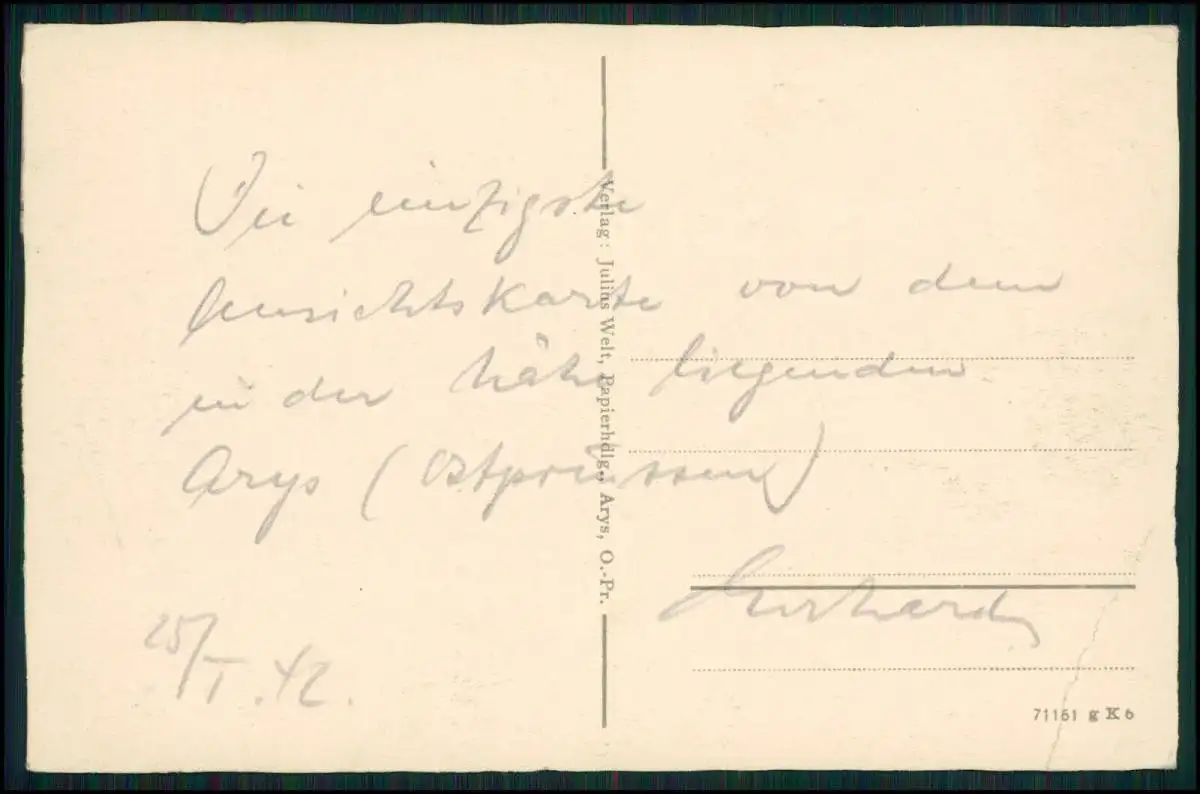 Die einzigste
Ansichtskarte von dem
in der Nähe liegenden
Arys (Ostpreussen)
Gerhard
25/I.42.
Verlag: Julius Welt, Papierhdlg., Arys, O.-Pr.
71161 g K 6